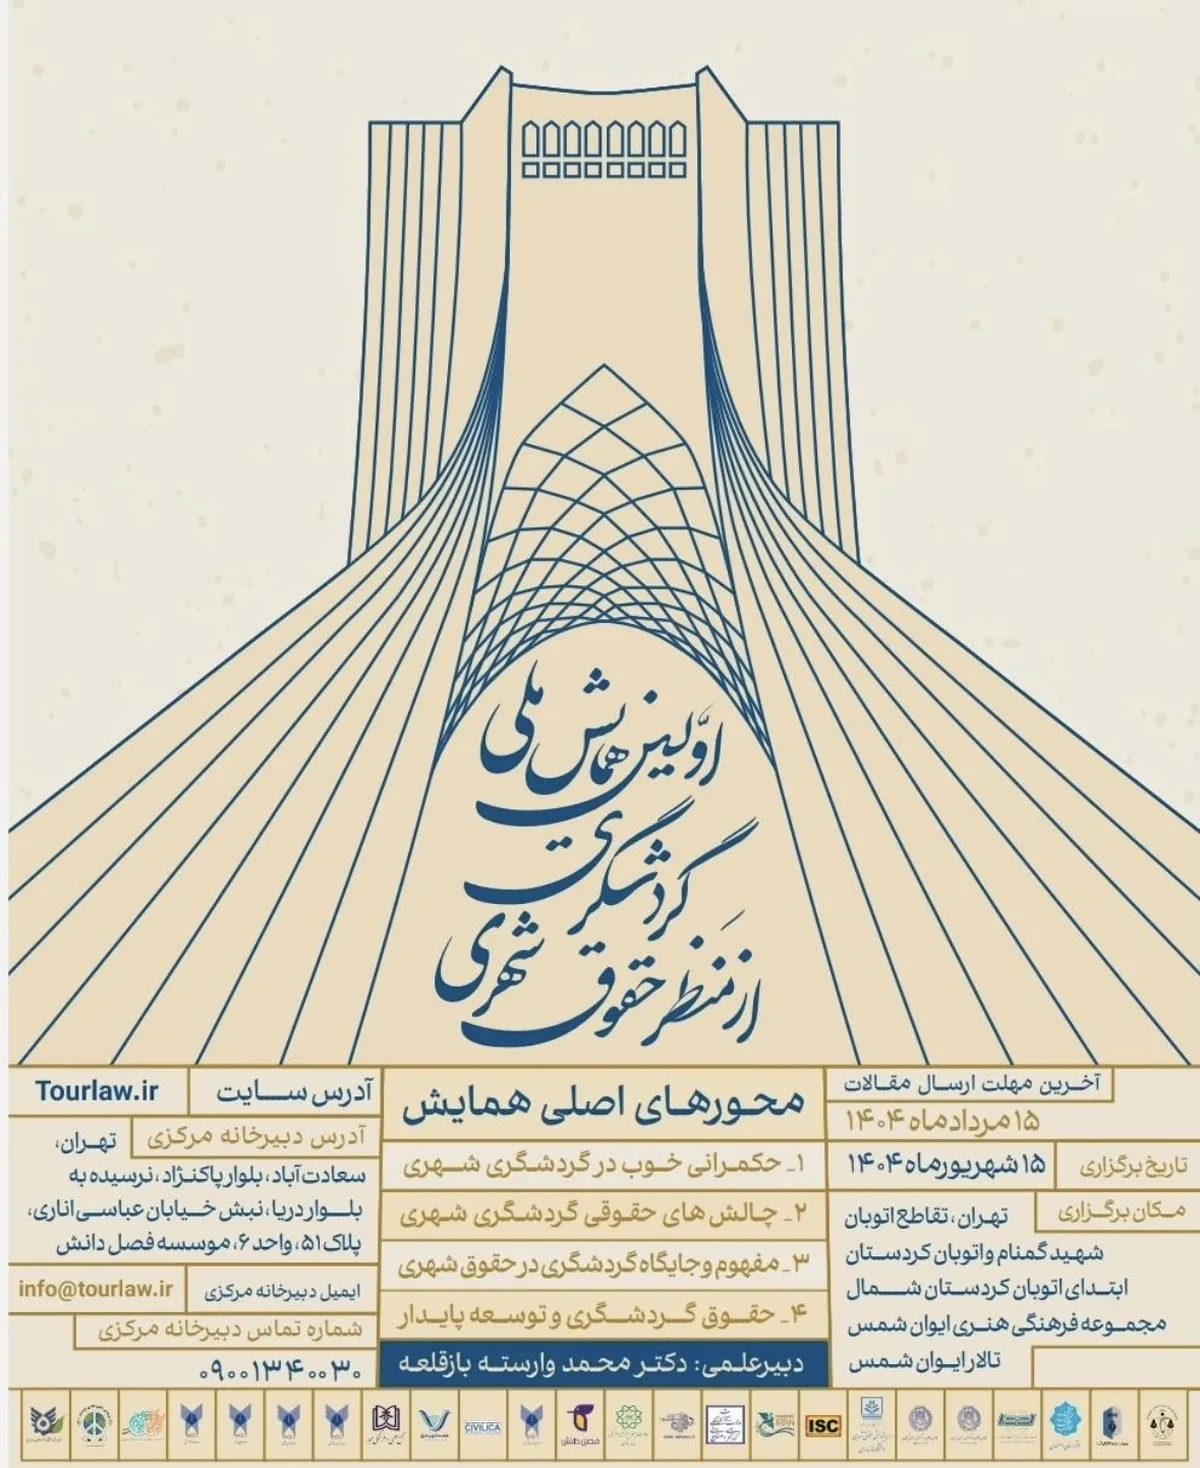 اوّلین همایش ملی
گردشگری
از منظر حقوق شهری
آخرین مهلت ارسال مقالات
۱۵ مردادماه ۱۴۰۴
تاریخ برگزاری
۱۵ شهریورماه ۱۴۰۴
مکان برگزاری
تهران، تقاطع اتوبان
شهید گمنام و اتوبان کردستان
ابتدای اتوبان کردستان شمال
مجموعه فرهنگی هنری ایوان شمس
تالار ایوان شمس
محورهای اصلی همایش
۱_ حکمرانی خوب در گردشگری شهری
۲_ چالش های حقوقی گردشگری شهری
۳_ مفهوم و جایگاه گردشگری در حقوق شهری
۴_ حقوق گردشگری و توسعه پایدار
دبیرعلمی: دکتر محمد وارسته بازقلعه
آدرس سایت
Tourlaw.ir
آدرس دبیرخانه مرکزی
تهران،
سعادت آباد، بلوار پاکنژاد، نرسیده به
بلوار دریا، نبش خیابان عباسی اناری،
پلاک ۵۱، واحد ۶، موسسه فصل دانش
ایمیل دبیرخانه مرکزی
info@tourlaw.ir
شماره تماس دبیرخانه مرکزی
۰۹۰۰۱۳۴۰۰۳۰
ISC
فصل دانش
CIVILICA